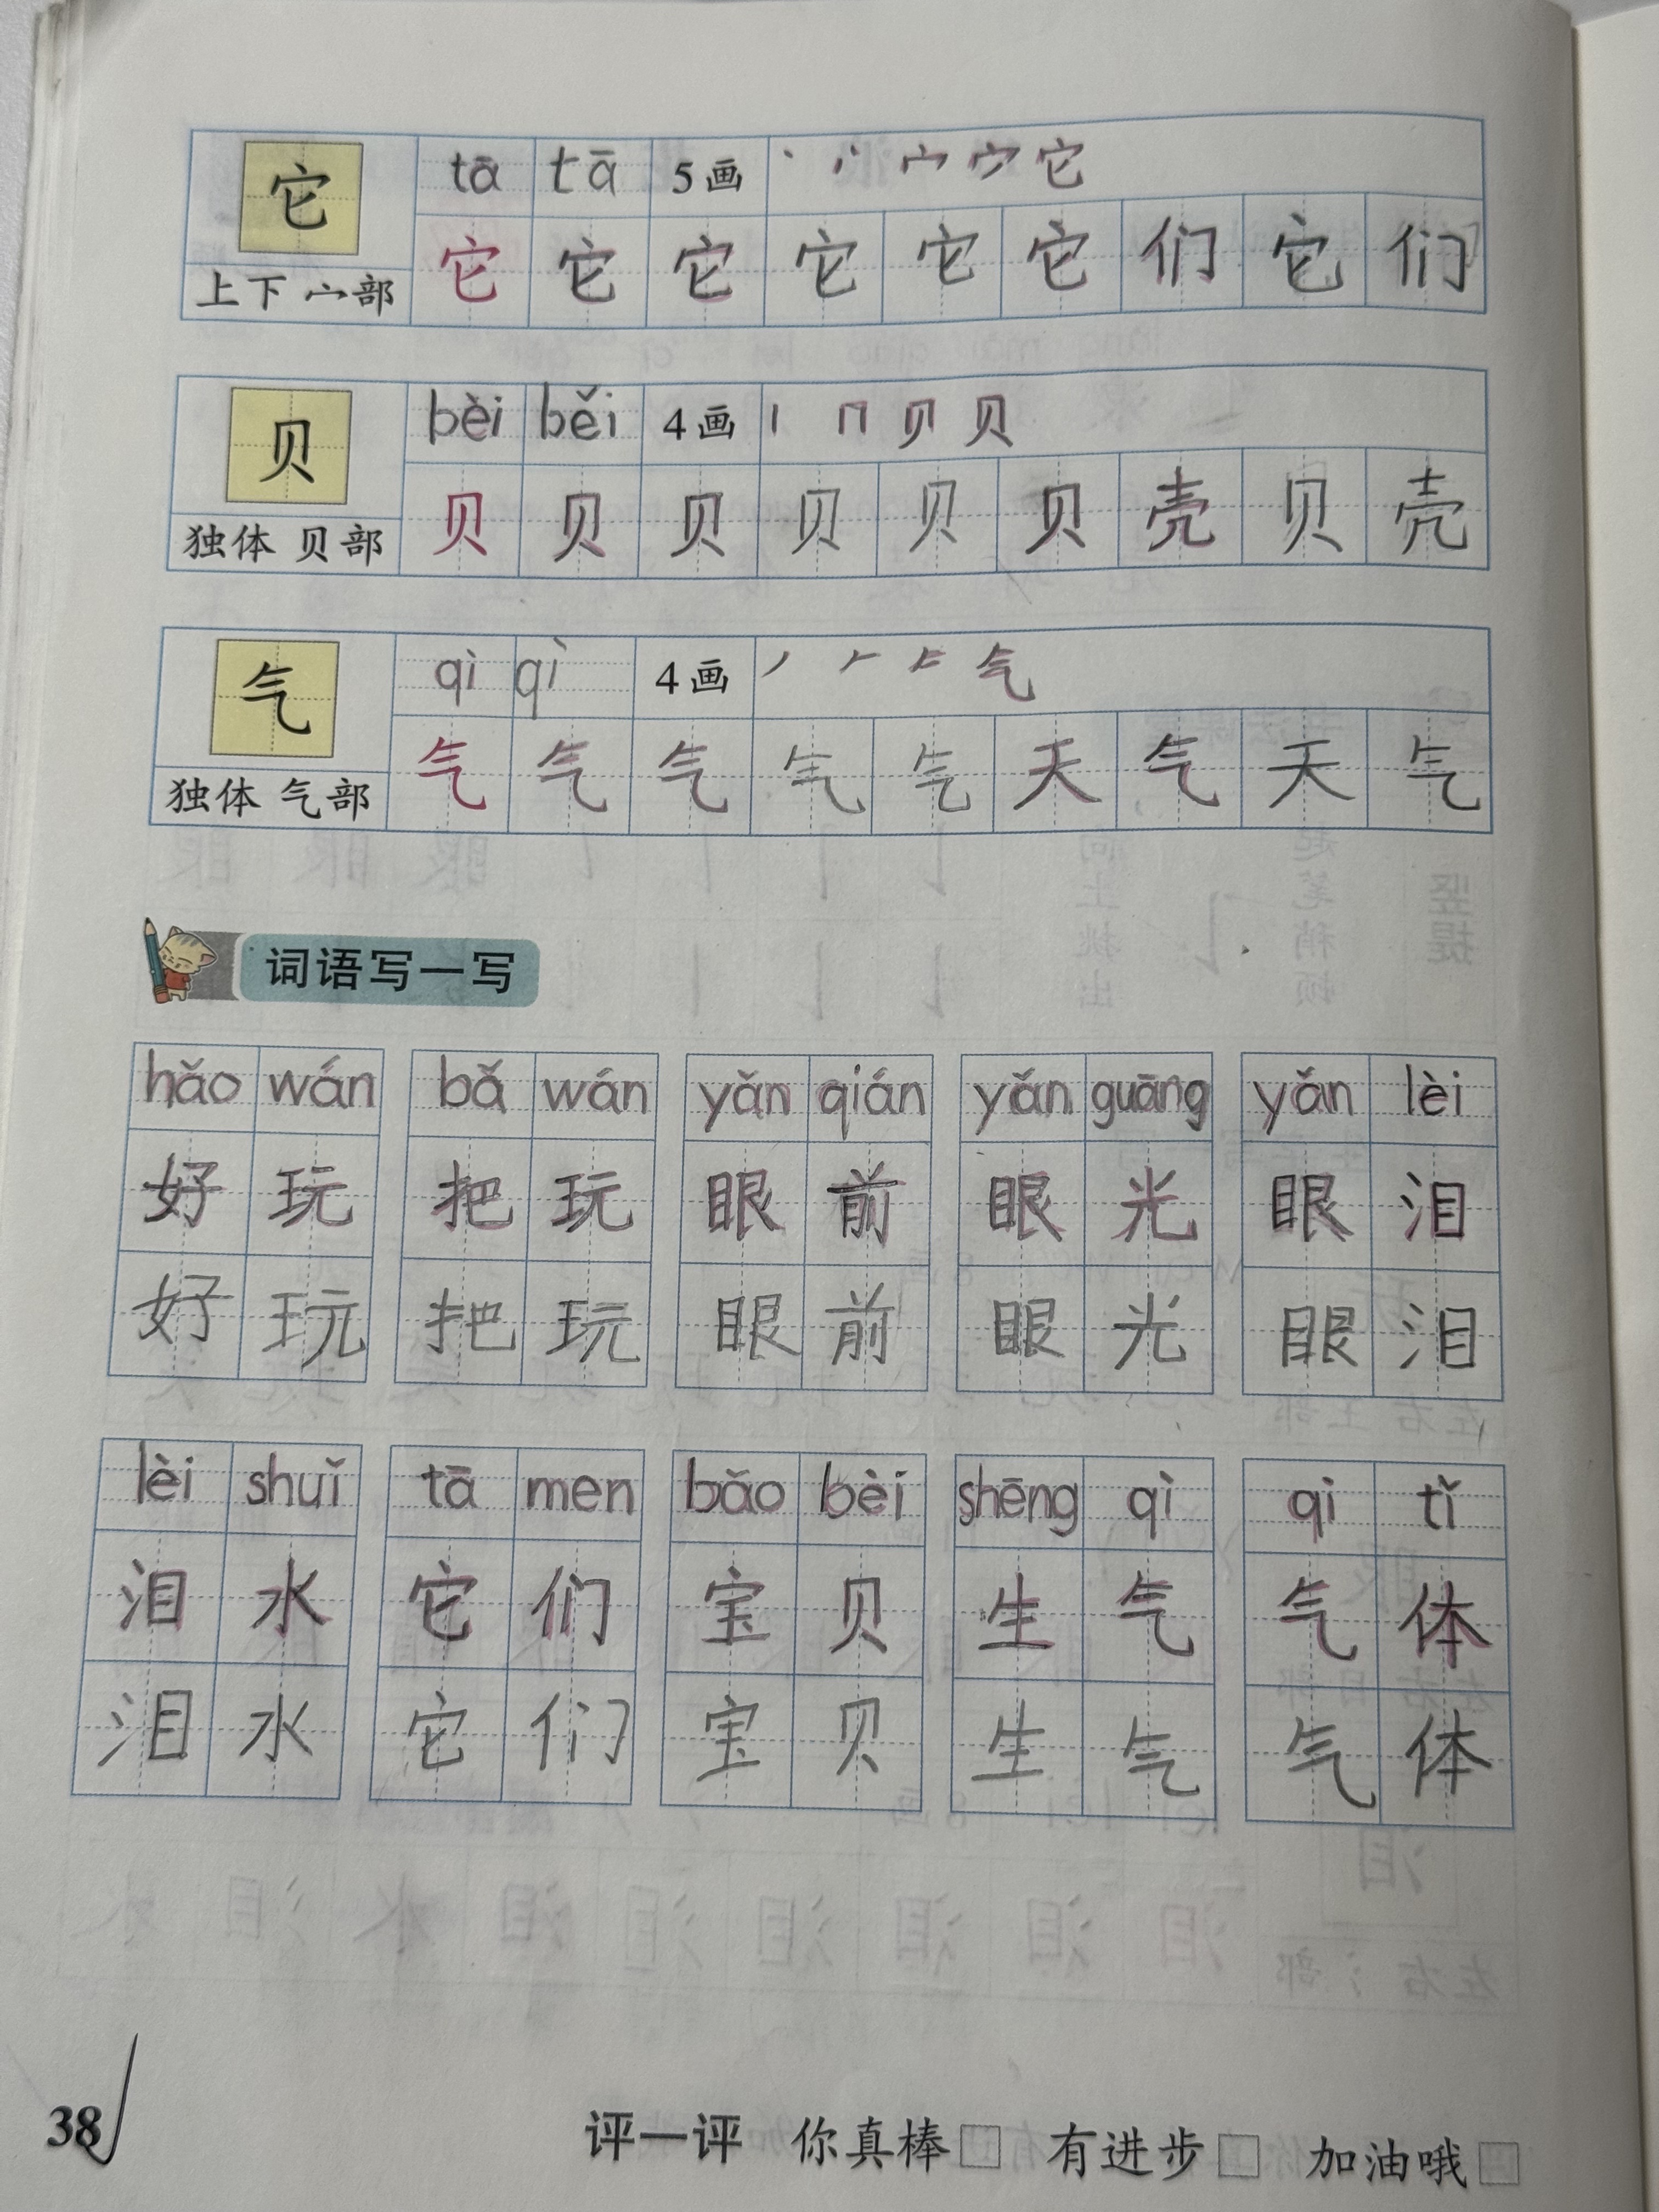 它 tā tā 5画 丶 丷 宀 宁 它
上下 宀部 它 它 它 它 它 它 们 它 们
贝 bèi běi 4画 丨 冂 贝 贝
独体 贝部 贝 贝 贝 贝 贝 贝 壳 贝 壳
气 qì qì 4画 丿 𠂉 气
独体 气部 气 气 气 气 气 天 气 天 气
词语写一写
hǎo wán bǎ wán yǎn qián yǎn guāng yǎn lèi
好玩 把玩 眼前 眼光 眼泪
好玩 把玩 眼前 眼光 眼泪
lèi shuǐ tā men bǎo bèi shēng qì qì tǐ
泪水 它们 宝贝 生气 气体
泪水 它们 宝贝 生气 气体
38 评一评 你真棒□ 有进步□ 加油哦□